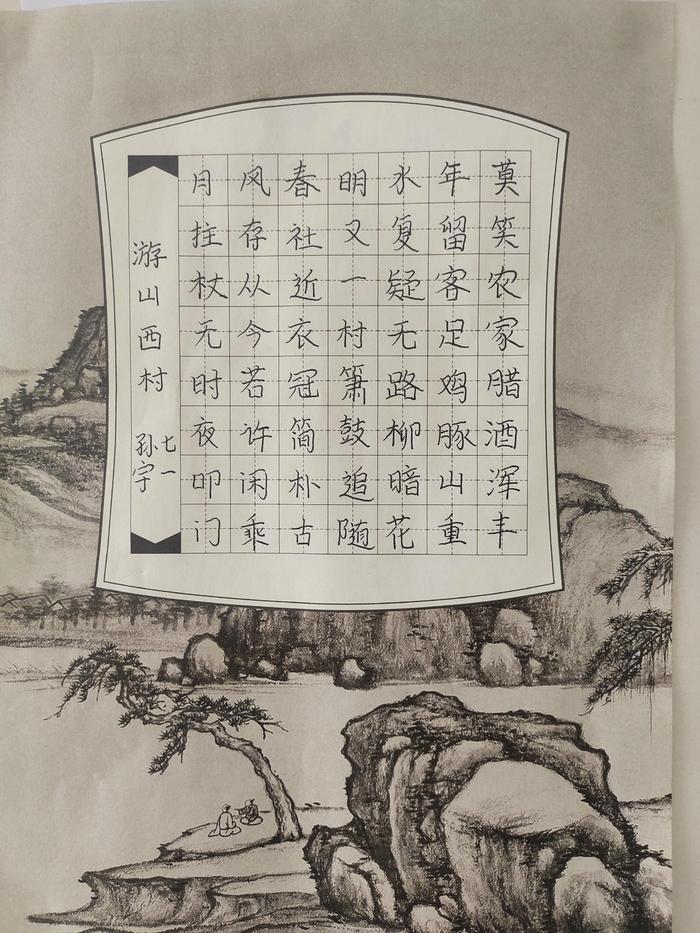 莫笑农家腊酒浑丰
年留客足鸡豚山重
水复疑无路柳暗花
明又一村箫鼓追随
春社近衣冠简朴古
风存从今若许闲乘
月拄杖无时夜叩门
游山西村
七一
孙宇